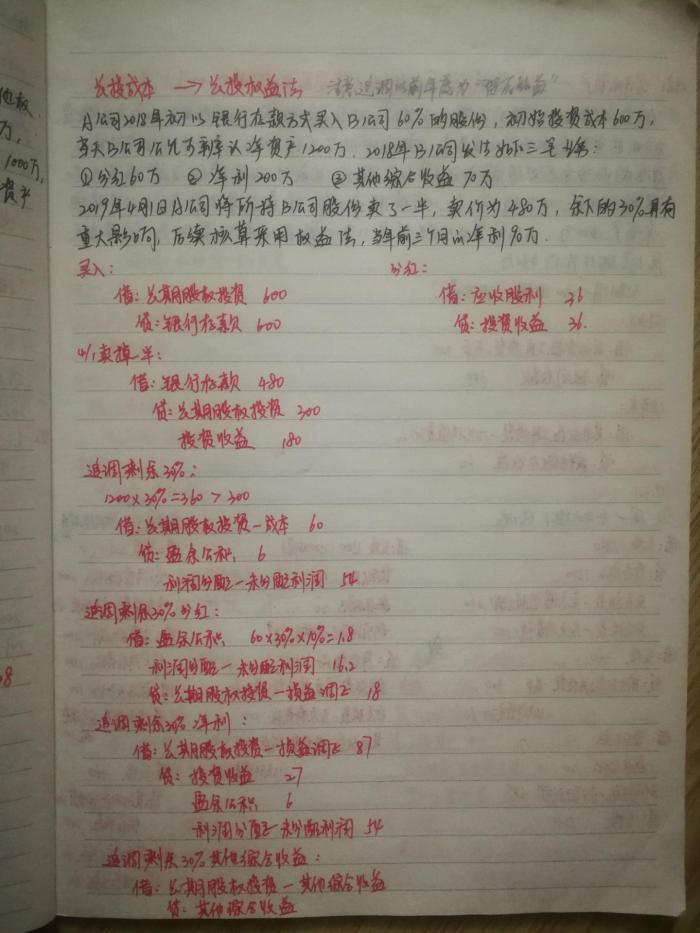 长投成本 → 长投权益法 注意追调以前年度为“留存收益”
A公司2018年初以银行存款方式买入B公司60%的股份，初始投资成本600万，
当天B公司公允可辨认净资产1200万．2018年B公司发生如下三笔业务：
①分红60万 ②净利200万 ③其他综合收益70万
2019年4月1日A公司将所持B公司股份卖了一半，卖价为480万，余下的30%具有
重大影响，后续核算采用权益法，当年前三个月的净利90万．
买入： 分红：
借：长期股权投资 600 借：应收股利 36
贷：银行存款 600 贷：投资收益 36.
4/1卖掉一半：
借：银行存款 480
贷：长期股权投资 300
投资收益 180
追调剩余30%：
1200×30%=360 > 300
借：长期股权投资—成本 60
贷：盈余公积 6
利润分配—未分配利润 54
追调剩余30%分红：
借：盈余公积 60×30%×10%=1.8
利润分配—未分配利润 16.2
贷：长期股权投资—损益调正 18
追调剩余30%净利：
借：长期股权投资—损益调正 87
贷：投资收益 27
盈余公积 6
利润分配—未分配利润 54
追调剩余30%其他综合收益：
借：长期股权投资—其他综合收益
贷：其他综合收益
他权
万，
1000万，
资产
8